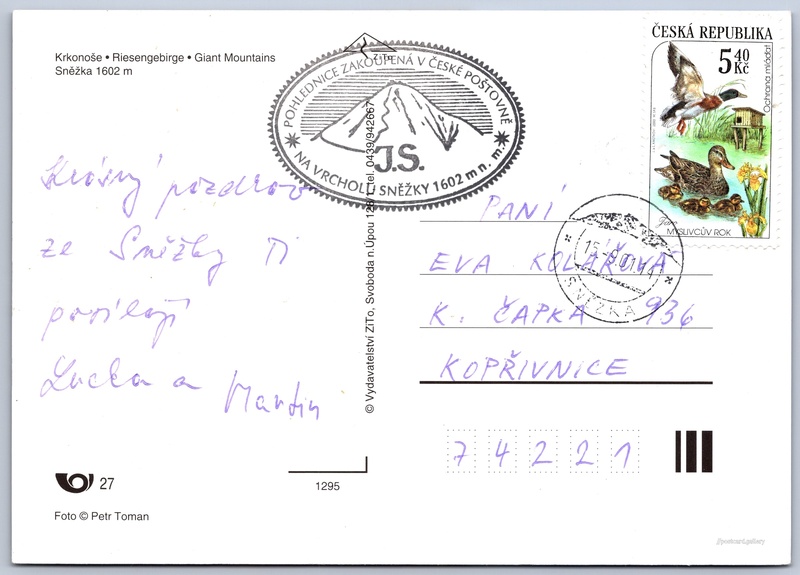 Krkonoše • Riesengebirge • Giant Mountains
Sněžka 1602 m
POHLEDNICE ZAKOUPENÁ V ČESKÉ POŠTOVNĚ
ZITo
J.S.
NA VRCHOLU SNĚŽKY 1602 m n. m.
ČESKÁ REPUBLIKA
5 40
Kč
Ochrana mláďat
Jaro
MYSLIVCŮV ROK
15.-8.01.14
SNĚŽKA
Krásný pozdrav
ze Sněžky Ti
posílají
Lucka a Martin
© Vydavatelství ZITo, Svoboda n.Úpou 128/1, tel. 0439/942667
PANÍ
EVA KOLAŘOVÁ
K. ČAPKA 936
KOPŘIVNICE
74221
27
1295
Foto © Petr Toman